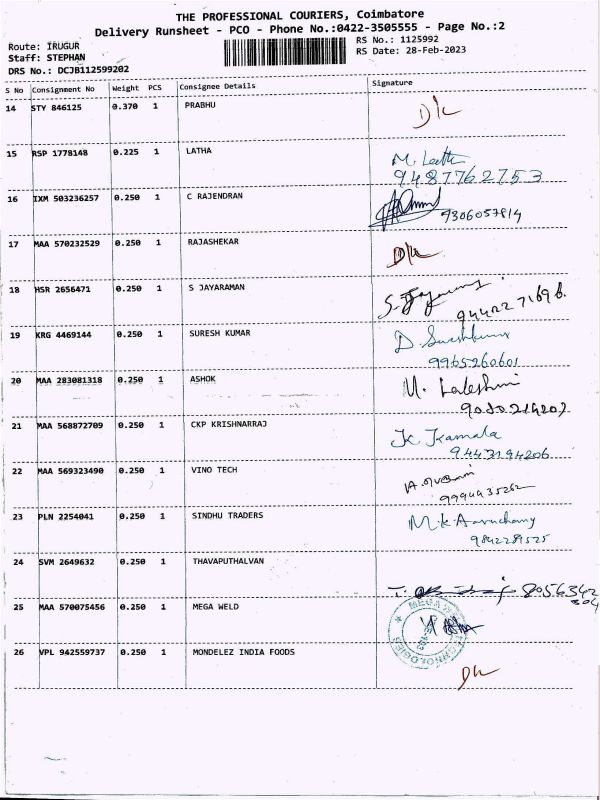 THE PROFESSIONAL COURIERS, Coimbatore
Delivery Runsheet - PCO - Phone No.:0422-3505555 - Page No.:2
Route: IRUGUR
RS No.: 1125992
Staff: STEPHAN
RS Date: 28-Feb-2023
DRS No.: DCJB112599202
S No Consignment No Weight PCS Consignee Details Signature
14 STY 846125 0.370 1 PRABHU D/L
15 RSP 1778148 0.225 1 LATHA M. Latha
9487762753
16 IXM 503236257 0.250 1 C RAJENDRAN 9306057814
17 MAA 570232529 0.250 1 RAJASHEKAR D/L
18 HSR 2656471 0.250 1 S JAYARAMAN
19 KRG 4469144 0.250 1 SURESH KUMAR D. Sureshkumar
9965260601
20 MAA 283081318 0.250 1 ASHOK M.
21 MAA 568872709 0.250 1 CKP KRISHNARRAJ K. Kamala
9443194206
22 MAA 569323490 0.250 1 VINO TECH
9994935262
23 PLN 2254041 0.250 1 SINDHU TRADERS M.K.
9842289525
24 SVM 2649632 0.250 1 THAVAPUTHALVAN
8056342
304
25 MAA 570075456 0.250 1 MEGA WELD
MEGA WELD TECHNOLOGIES
26 VPL 942559737 0.250 1 MONDELEZ INDIA FOODS
D/L